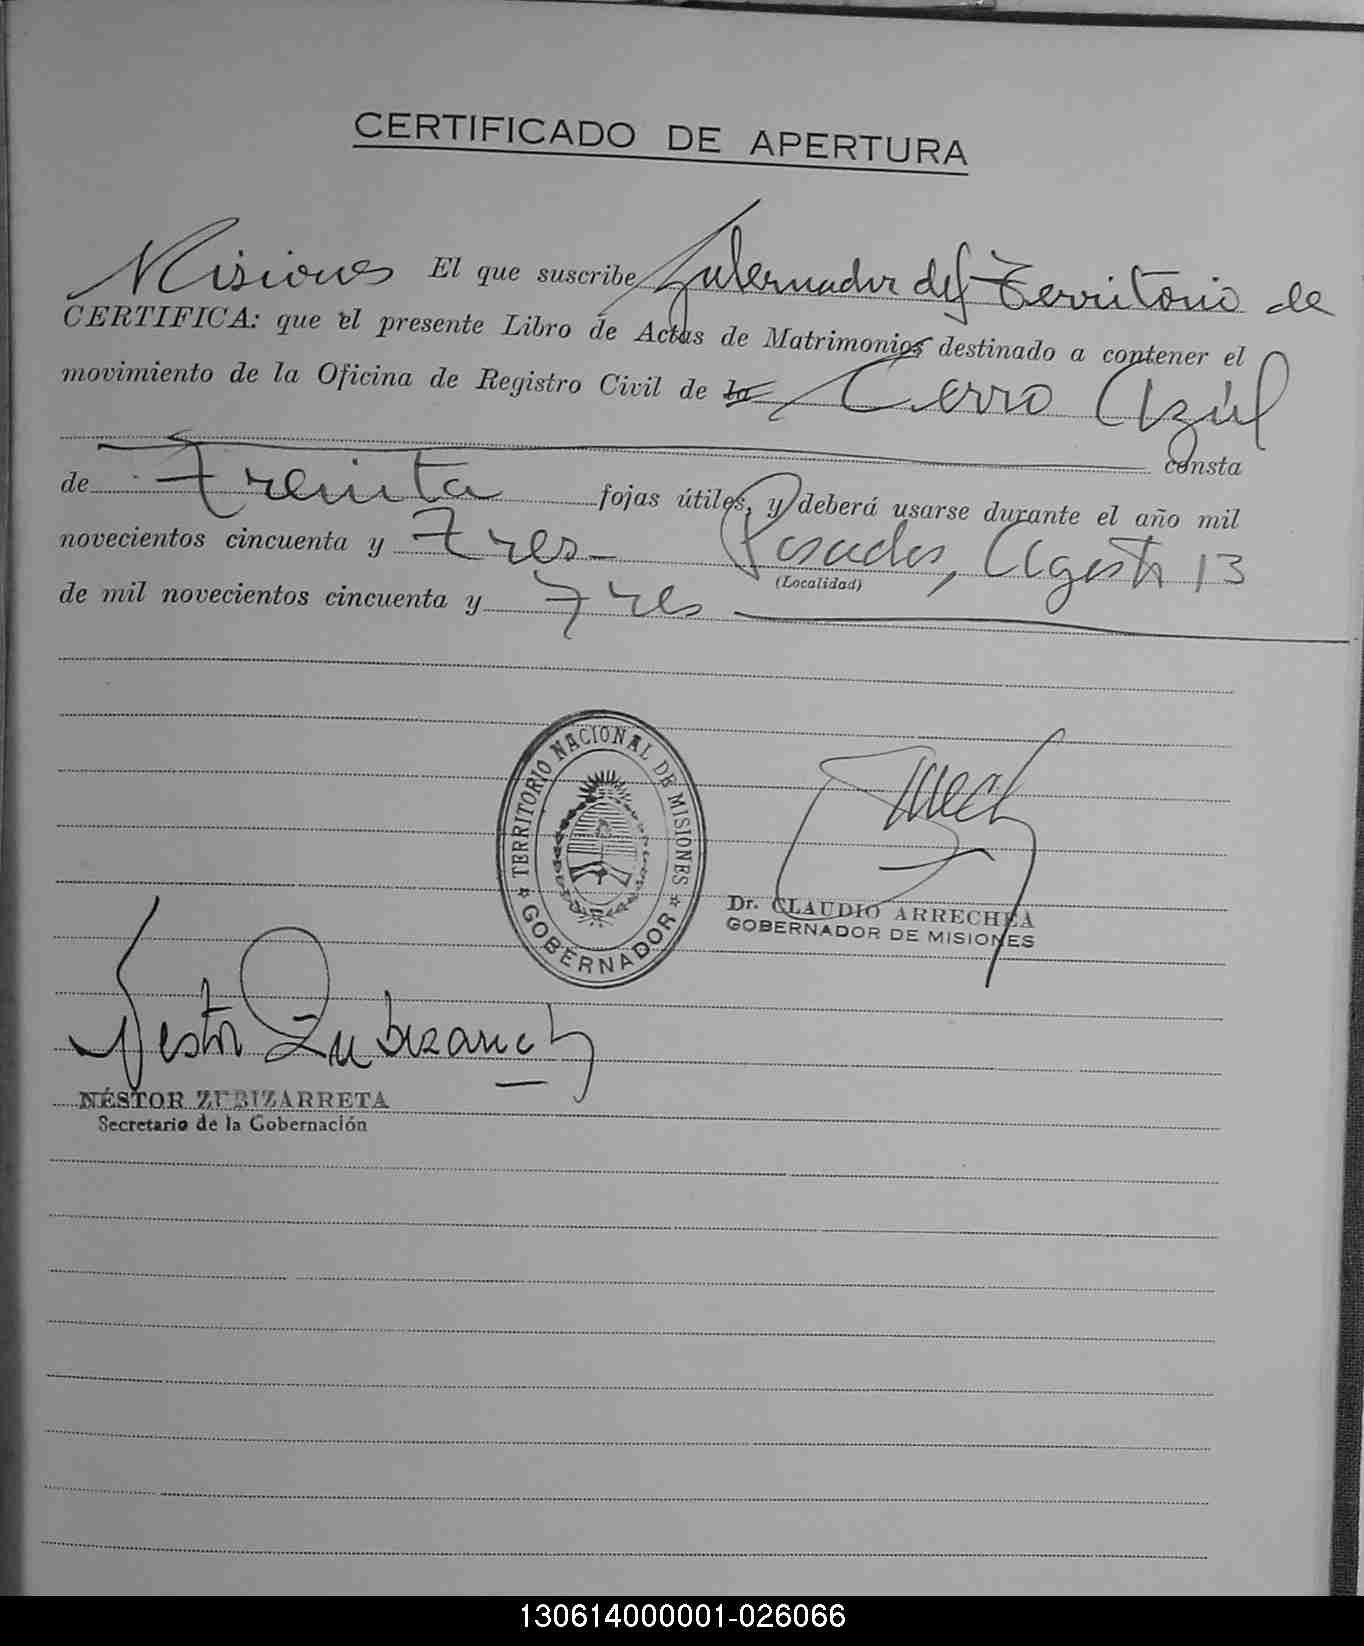 CERTIFICADO DE APERTURA
Misiones El que suscribe Gobernador del Territorio de
CERTIFICA: que el presente Libro de Actas de Matrimonios destinado a contener el
movimiento de la Oficina de Registro Civil de la Cerro Azúl
consta
de Treinta fojas útiles, y deberá usarse durante el año mil
novecientos cincuenta y Tres Posadas, Agosto 13
(Localidad)
de mil novecientos cincuenta y Tres
TERRITORIO NACIONAL DE MISIONES
GOBERNADOR
Dr. CLAUDIO ARRECHEA
GOBERNADOR DE MISIONES
Nestor Zubizarreta
NÉSTOR ZUBIZARRETA
Secretario de la Gobernación
130614000001-026066